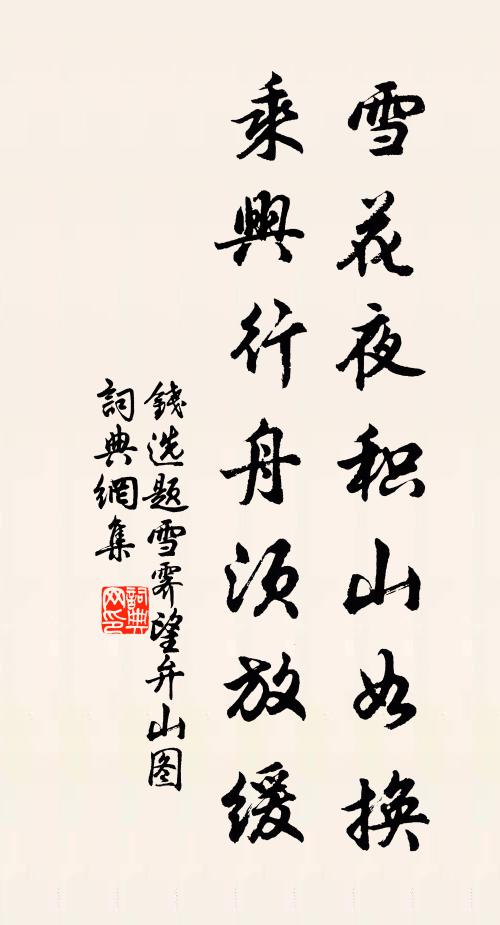 雪花夜积山如换
乘興行舟须放缓
錢选题雪霁望弁山图
詞典網集
詞典网印